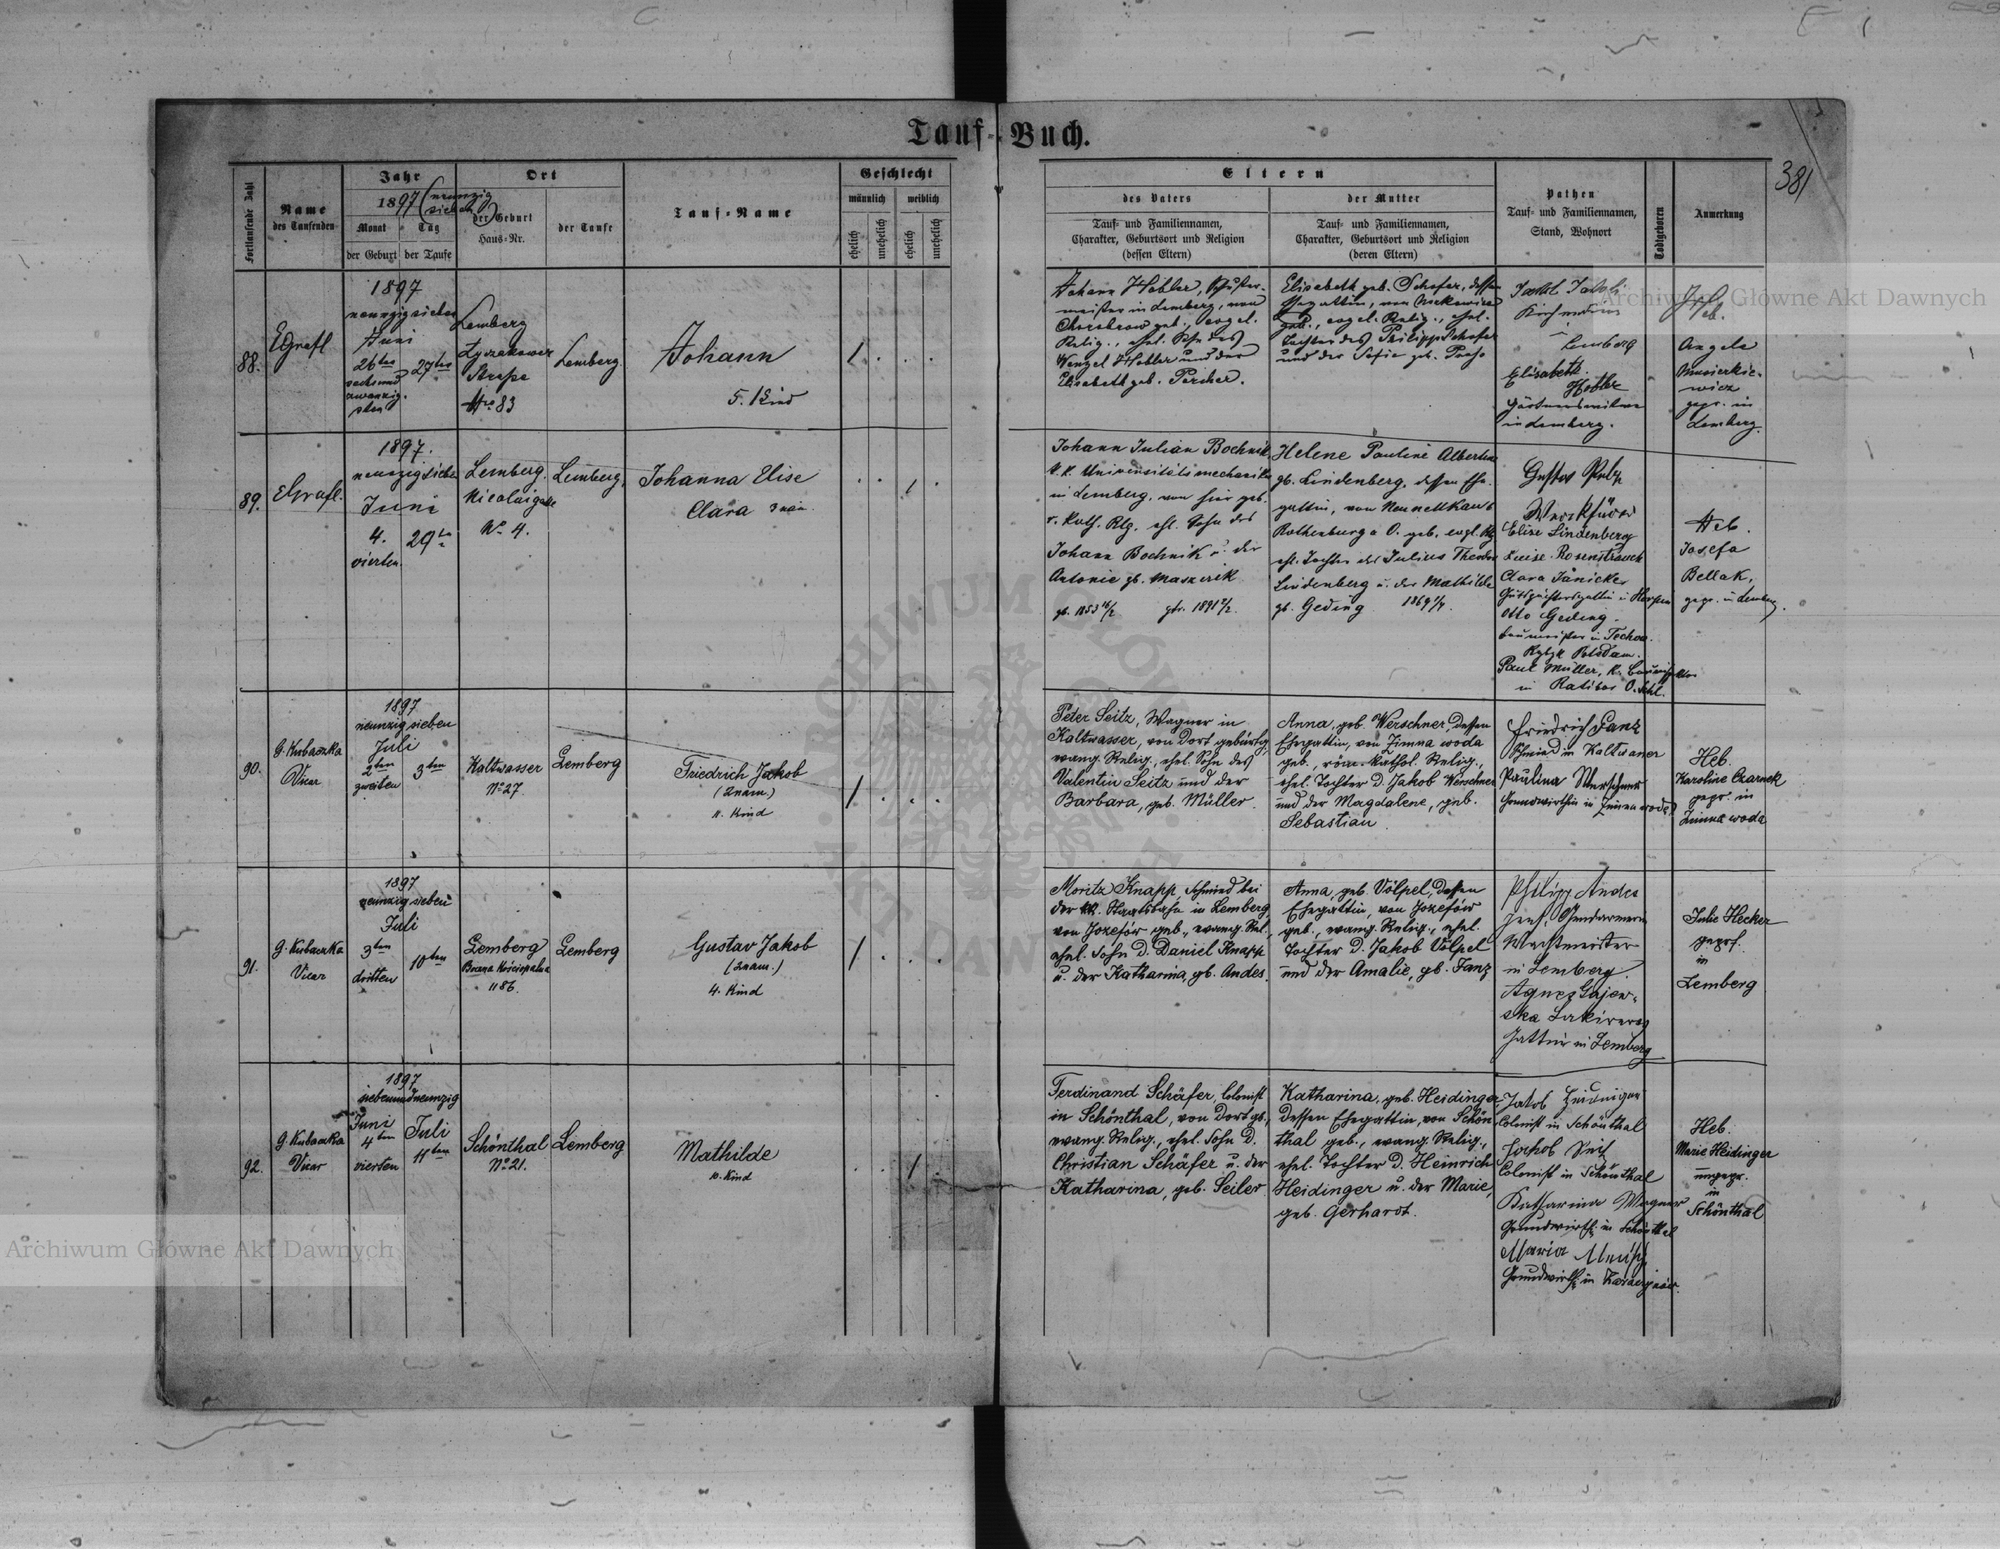 Tauf-Buch.
381
Fortlaufende Zahl
Name
des Taufenden
Jahr
1897 (neunzig
sieben)
Monat Tag
der Geburt der Taufe
Ort
der Geburt
Haus-Nr.
der Taufe
Tauf-Name
Geschlecht
männlich weiblich
ehelich unehelich ehelich unehelich
Eltern
des Vaters
Tauf- und Familiennamen,
Charakter, Geburtsort und Religion
(dessen Eltern)
der Mutter
Tauf- und Familiennamen,
Charakter, Geburtsort und Religion
(deren Eltern)
Pathen
Tauf- und Familiennamen,
Stand, Wohnort
Todtgeboren
Anmerkung
88.
EGrafl
1897
neunzigsieben
Juni
26ten 27ten
sechsund
zwanzig-
sten
Lemberg
Łyczakower
Straße
Nro 83
Lemberg
Johann
5. Kind
Johann Hobler, Schuster-
meister in Lemberg, von
geb., evgel.
Relig., ehel. Sohn des
Wenzel Hobler und der
Elisabeth geb. Percher.
Elisabeth geb. Schefer, dessen
Ehegattin, von
geb., evgel. Relig., ehel.
Tochter des Philipp Schefer
und der Sofie geb.
Lemberg
Elisabeth
Hobler
in Lemberg.
Heb.
Angela
gepr. in
Lemberg
89.
EGrafl.
1897.
neunzigsieben
Juni
4. 29te
vierten
Lemberg.
Nicolaigasse
No 4.
Lemberg,
Johanna Elise
Clara 3 nam.
Johann Julian Bochnik
k.k. Universitätsmechaniker
in Lemberg, von hier geb.
r. kath. Rlg. ehl. Sohn des
Johann Bochnik u. der
Antonie gb. Maszerik
gb. 1853 16/2 gtr. 1891 2/2.
Helene Pauline Albertine
gb. Lindenberg, dessen Ehe-
gattin, von
Rothenburg a O. geb. evgl. Rlg
ehl. Tochter des Julius Theodor
Lindenberg u. der Mathilde
gb. Geding 1869 1/7.
Gustav
Werkführer
Elise Lindenberg
Luise Rosenstrauch
Clara Jänicker
Otto Geding
Baumeister in
Potsdam.
Paul Müller, K. Bauinspektor
in Ratibor O. Schl.
Heb.
Josefa
Bellak,
gepr. in Lemberg.
90.
G. Kubaczka
Vicar
1897
neunzig sieben
Juli
2ten 3ten
zweiten
Kaltwasser
No 27
Lemberg
Friedrich Jakob
(2nam.)
11. Kind
Peter Seitz, Wagner in
Kaltwasser, von dort gebürtig,
evang. Relig., ehel. Sohn des
Valentin Seitz und der
Barbara, geb. Müller.
Anna, geb. Werschner, dessen
Ehegattin, von Zimna woda
geb., röm. kathol. Relig.,
ehel. Tochter d. Jakob Werschner
und der Magdalene, geb.
Sebastian
Friedrich Fanz
Schmied in Kaltwasser
Paulina Werschner
Grundwirthin in Zimna woda
Heb.
Karoline Czarnek
gepr. in
Zimna woda
91.
G. Kubaczka
Vicar
1897
neunzig sieben
Juli
3ten 10ten
dritten
Lemberg
1186.
Lemberg
Gustav Jakob
(2nam.)
4. Kind
Moritz Knapp, Schmied bei
der k.k. Staatsbahn in Lemberg,
von Jozefów geb., evang. Rel.
ehel. Sohn d. Daniel Knapp
u. der Katharina, gb. Andes.
Anna, geb. Völpel, dessen
Ehegattin, von Jozefów
geb., evang. Relig., ehel.
Tochter d. Jakob Völpel
und der Amalie, gb. Fanz
Philipp Andes
Gendarmerie
Wachtmeister
in Lemberg.
Agnes Gajew-
ska Lakirers
Gattin in Lemberg
Julie Hecker
geprf.
in
Lemberg
92.
G. Kubaczka
Vicar
1897
siebenundneunzig
Juni Juli
4ten 11ten
vierten
Schönthal
No 21.
Lemberg
Mathilde
10. Kind
Ferdinand Schäfer, Colonist
in Schönthal, von dort gb.,
evang. Relig., ehel. Sohn d.
Christian Schäfer u. der
Katharina, geb. Seiler
Katharina, geb. Heidinger
dessen Ehegattin, von Schön-
thal geb., evang. Relig.,
ehel. Tochter d. Heinrich
Heidinger u. der Marie,
geb. Gerhardt.
Jakob Heidinger
Colonist in Schönthal
Jakob
Colonist in Schönthal
Katharina Wagner
Grundwirth. in Schönthal
Maria
Grundwirth. in
Heb.
Marie Heidinger
ungepr.
in
Schönthal
Archiwum Główne Akt Dawnych
Archiwum Główne Akt Dawnych
ARCHIWUM GŁÓWNE AKT DAWNYCH